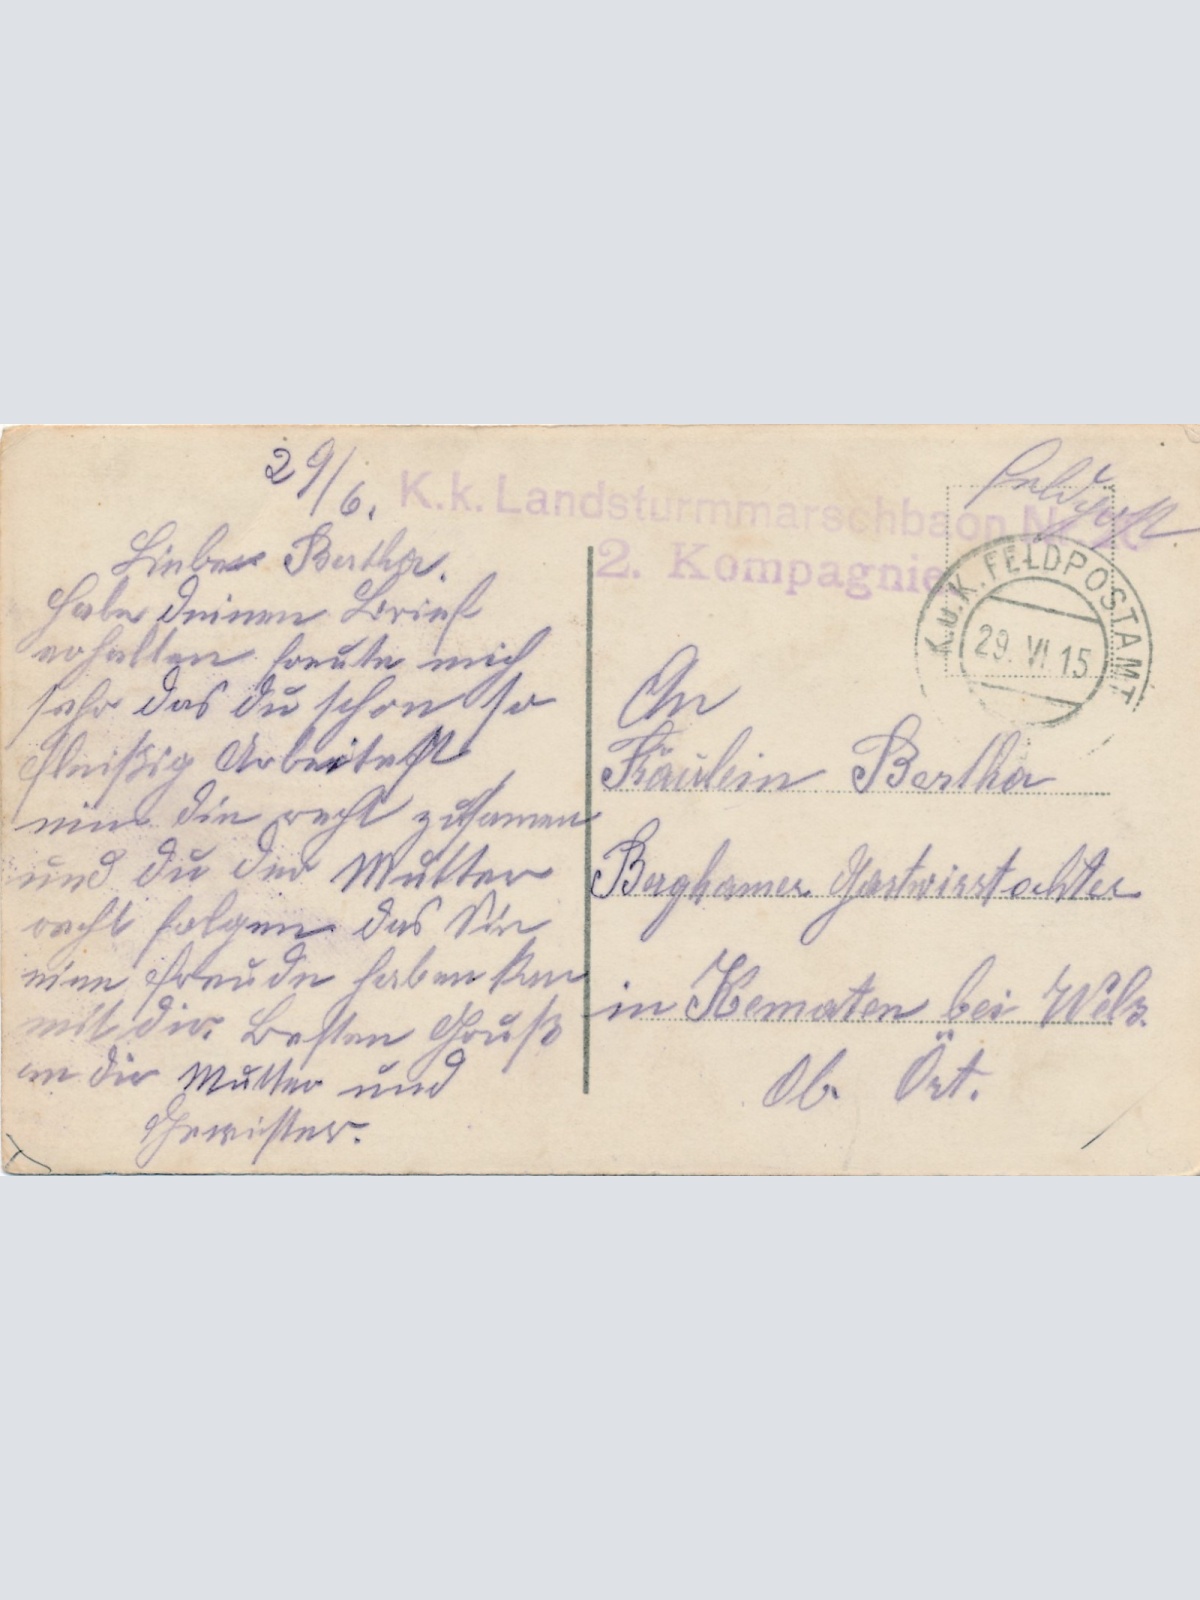 29/6.
Liebe Bertha.
Habe deinen Brief
erhalten freute mich
sehr das du schon so
fleißig Arbeitest
nim die recht zusamen
und du der Mutter
recht folgen das Sie
eine Freude haben kan
mit dir. Besten Gruß
an die Mutter und
Gewister.
K.k. Landsturmmarschbaon
2. Kompagnie
Feldpost.
K.u.K. FELDPOSTAMT
29. VI. 15
An
Fräulein Bertha
Berghamer Gastwirstochter
in Kematen bei Wels.
Ob. Öst.